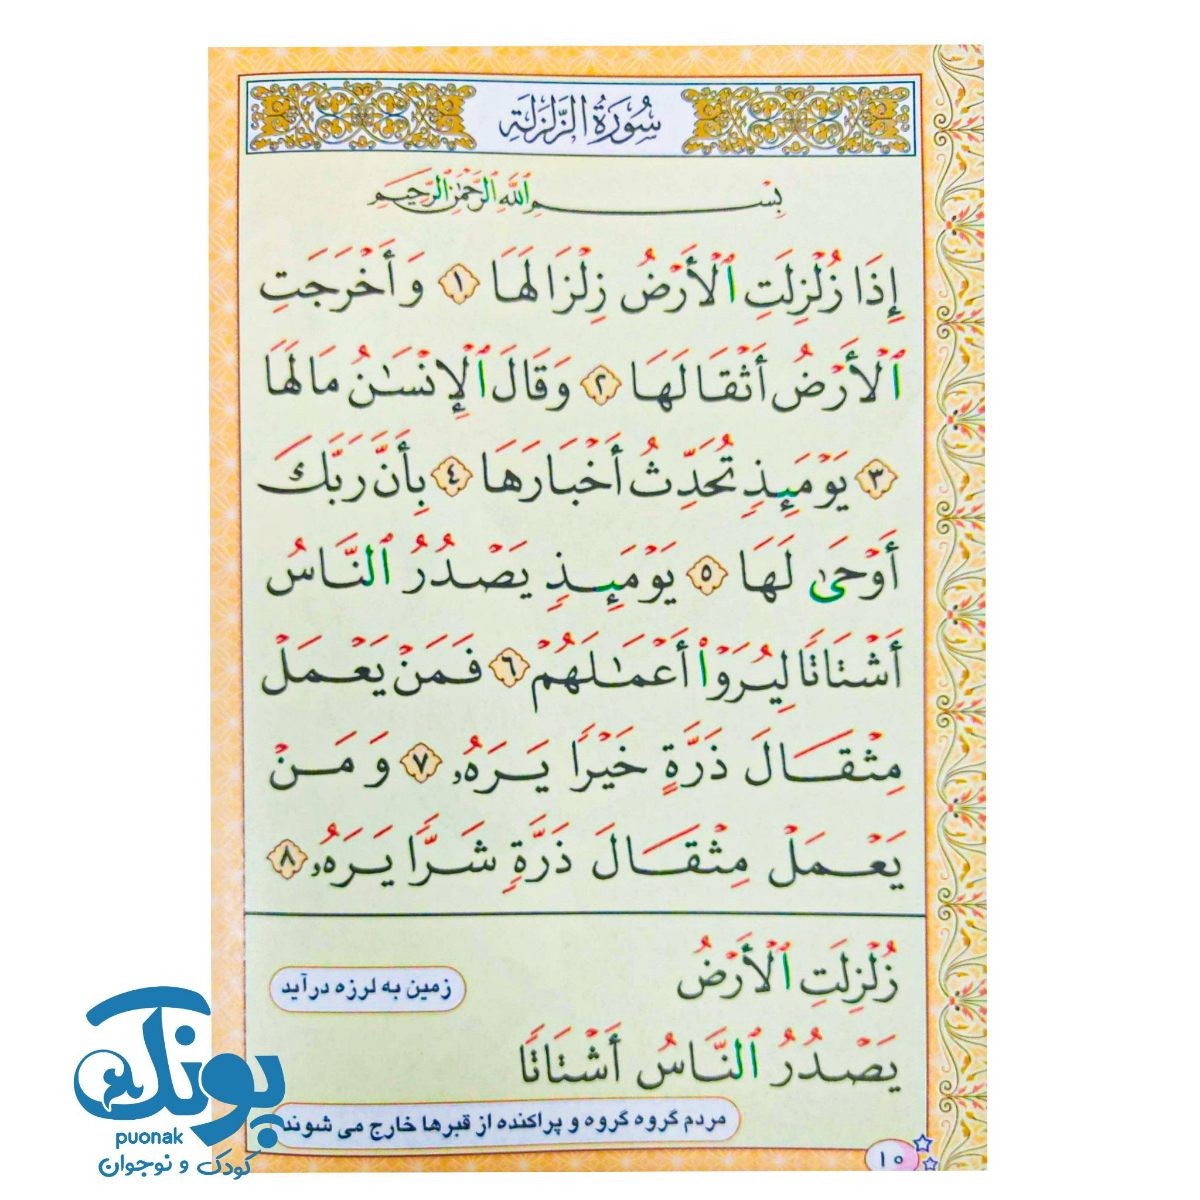 سُورَةُ الزَّلْزَلَةِ
بِسْمِ ٱللَّهِ ٱلرَّحْمَٰنِ ٱلرَّحِيمِ
إِذَا زُلْزِلَتِ ٱلْأَرْضُ زِلْزَالَهَا ۱ وَأَخْرَجَتِ
ٱلْأَرْضُ أَثْقَالَهَا ۲ وَقَالَ ٱلْإِنْسَٰنُ مَا لَهَا
۳ يَوْمَئِذٍ تُحَدِّثُ أَخْبَارَهَا ٤ بِأَنَّ رَبَّكَ
أَوْحَىٰ لَهَا ٥ يَوْمَئِذٍ يَصْدُرُ ٱلنَّاسُ
أَشْتَاتًا لِيُرَوْا۟ أَعْمَٰلَهُمْ ٦ فَمَنْ يَعْمَلْ
مِثْقَالَ ذَرَّةٍ خَيْرًا يَرَهُۥ ۷ وَمَنْ
يَعْمَلْ مِثْقَالَ ذَرَّةٍ شَرًّا يَرَهُۥ ۸
زُلْزِلَتِ ٱلْأَرْضُ
زمین به لرزه درآید
يَصْدُرُ ٱلنَّاسُ أَشْتَاتًا
مردم گروه گروه و پراکنده از قبرها خارج می شوند
۱۰
پونک
puonak
کودک و نوجوان